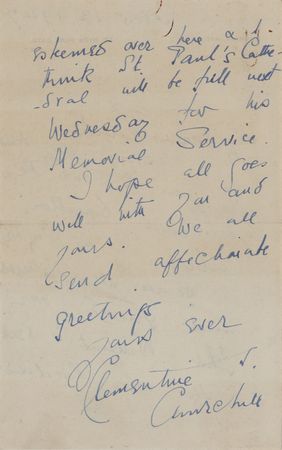 esteemed over here & I
think St. Paul's Cathe-
-dral will be full next
Wednesday for his
Memorial Service.
I hope all goes
well with you and
yours. We all
send affectionate
greetings
Yours ever
Clementine S.
Churchill